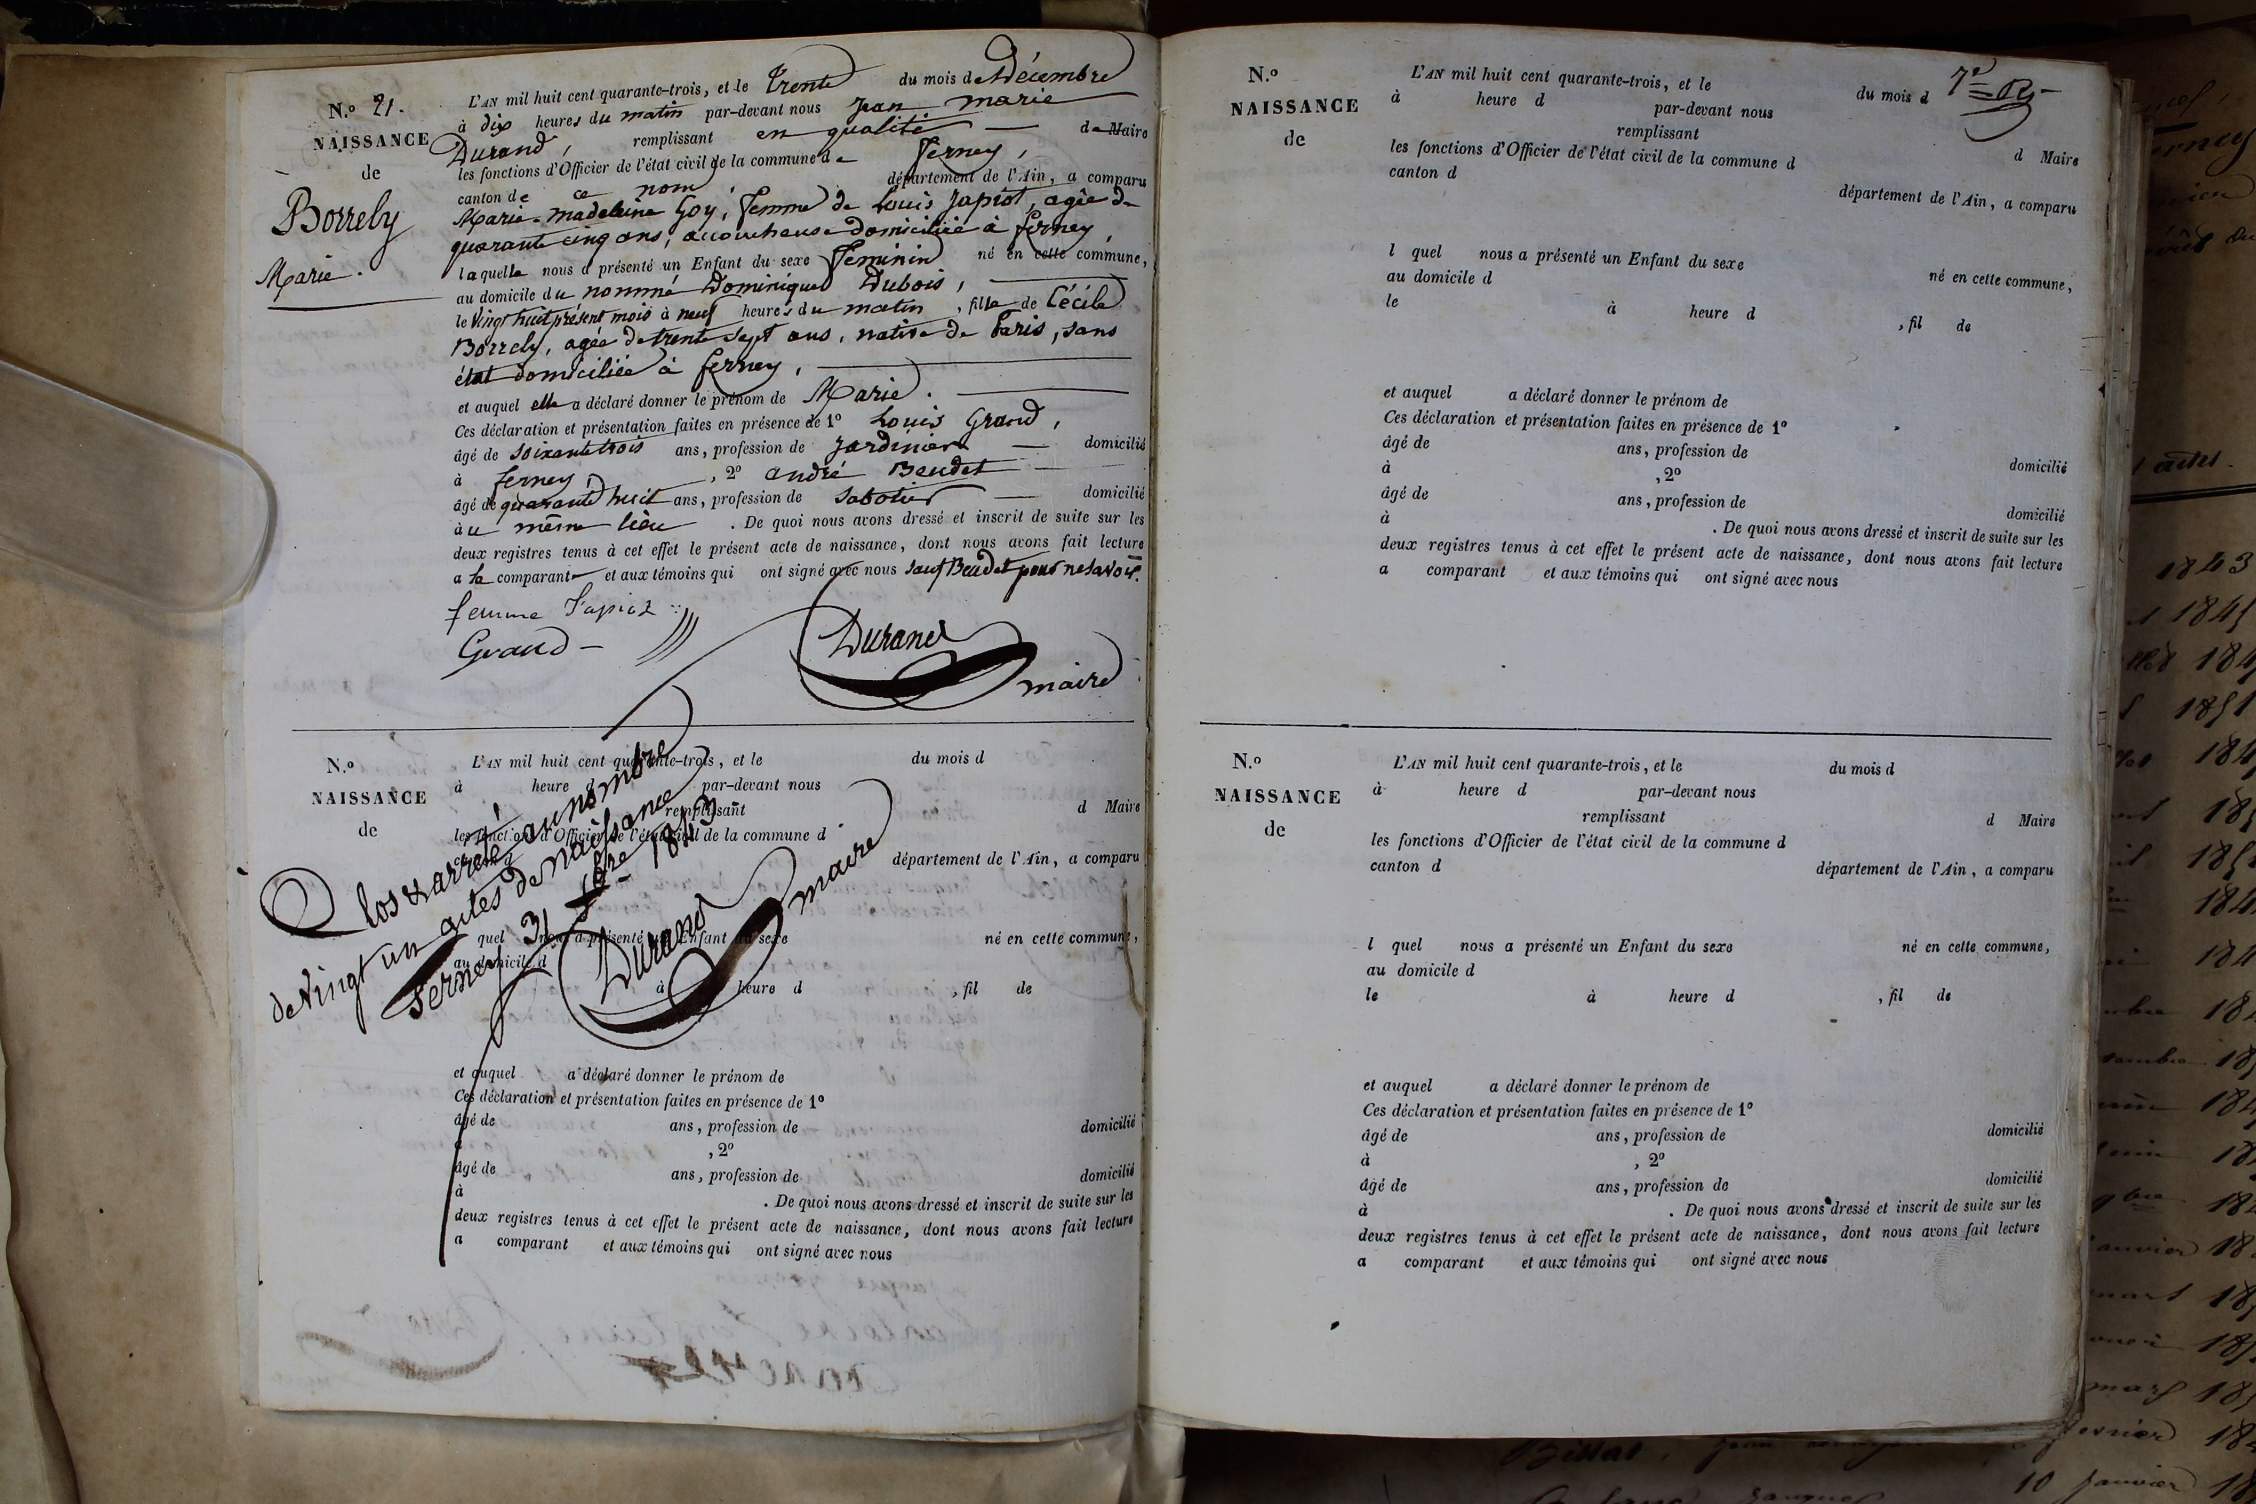 N.º 21.
NAISSANCE
de
Borrely
Marie.
L'AN mil huit cent quarante-trois, et le trente du mois de Décembre
à dix heures du matin par-devant nous Jean marie
Durand, remplissant en qualité de Maire
les fonctions d'Officier de l'état civil de la commune de ferney,
canton de ce nom département de l'Ain, a comparu
Marie-madeleine Goy, femme de Louis Japiot, agée de
quarante cinq ans, accoucheuse domiciliée à ferney,
laquelle nous a présenté un Enfant du sexe feminin né en cette commune,
au domicile du nommé Dominique Dubois,
le vingt huit présent mois à neuf heures du matin, fille de Cécile
Borrely, agée de trente sept ans, native de Paris, sans
état domiciliée à ferney,
et auquel elle a déclaré donner le prénom de Marie.
Ces déclaration et présentation faites en présence de 1º Louis Grand,
âgé de soixante trois ans, profession de jardinier domicilié
à ferney, , 2º andré Beudet
âgé de quarante huit ans, profession de sabotier domicilié
au même lieu . De quoi nous avons dressé et inscrit de suite sur les
deux registres tenus à cet effet le présent acte de naissance, dont nous avons fait lecture
a la comparante et aux témoins qui ont signé avec nous sauf Beudet pour ne savoir.
femme Japiot
Grand
Durand
maire
N.º
NAISSANCE
de
L'AN mil huit cent quarante-trois, et le du mois d
à heure d par-devant nous
remplissant d Maire
les fonctions d'Officier de l'état civil de la commune d
canton d département de l'Ain, a comparu
quel nous a présenté un Enfant du sexe né en cette commune,
au domicile d
à heure d , fil de
Clos & arrété au nombre
de vingt un actes de naissance
ferney 31 Xbre 1843
Durand maire
et auquel a déclaré donner le prénom de
Ces déclaration et présentation faites en présence de 1º
âgé de ans, profession de domicilié
à , 2º
âgé de ans, profession de domicilié
à . De quoi nous avons dressé et inscrit de suite sur les
deux registres tenus à cet effet le présent acte de naissance, dont nous avons fait lecture
a comparant et aux témoins qui ont signé avec nous
N.º
NAISSANCE
de
L'AN mil huit cent quarante-trois, et le du mois d
à heure d par-devant nous
remplissant d Maire
les fonctions d'Officier de l'état civil de la commune d
canton d département de l'Ain, a comparu
l quel nous a présenté un Enfant du sexe né en cette commune,
au domicile d
le à heure d , fil de
et auquel a déclaré donner le prénom de
Ces déclaration et présentation faites en présence de 1º
âgé de ans, profession de domicilié
à , 2º
âgé de ans, profession de domicilié
à . De quoi nous avons dressé et inscrit de suite sur les
deux registres tenus à cet effet le présent acte de naissance, dont nous avons fait lecture
a comparant et aux témoins qui ont signé avec nous
N.º
NAISSANCE
de
L'AN mil huit cent quarante-trois, et le du mois d
à heure d par-devant nous
remplissant d Maire
les fonctions d'Officier de l'état civil de la commune d
canton d département de l'Ain, a comparu
l quel nous a présenté un Enfant du sexe né en cette commune,
au domicile d
le à heure d , fil de
et auquel a déclaré donner le prénom de
Ces déclaration et présentation faites en présence de 1º
âgé de ans, profession de domicilié
à , 2º
âgé de ans, profession de domicilié
à . De quoi nous avons dressé et inscrit de suite sur les
deux registres tenus à cet effet le présent acte de naissance, dont nous avons fait lecture
a comparant et aux témoins qui ont signé avec nous
1843
1851
10 Janvier